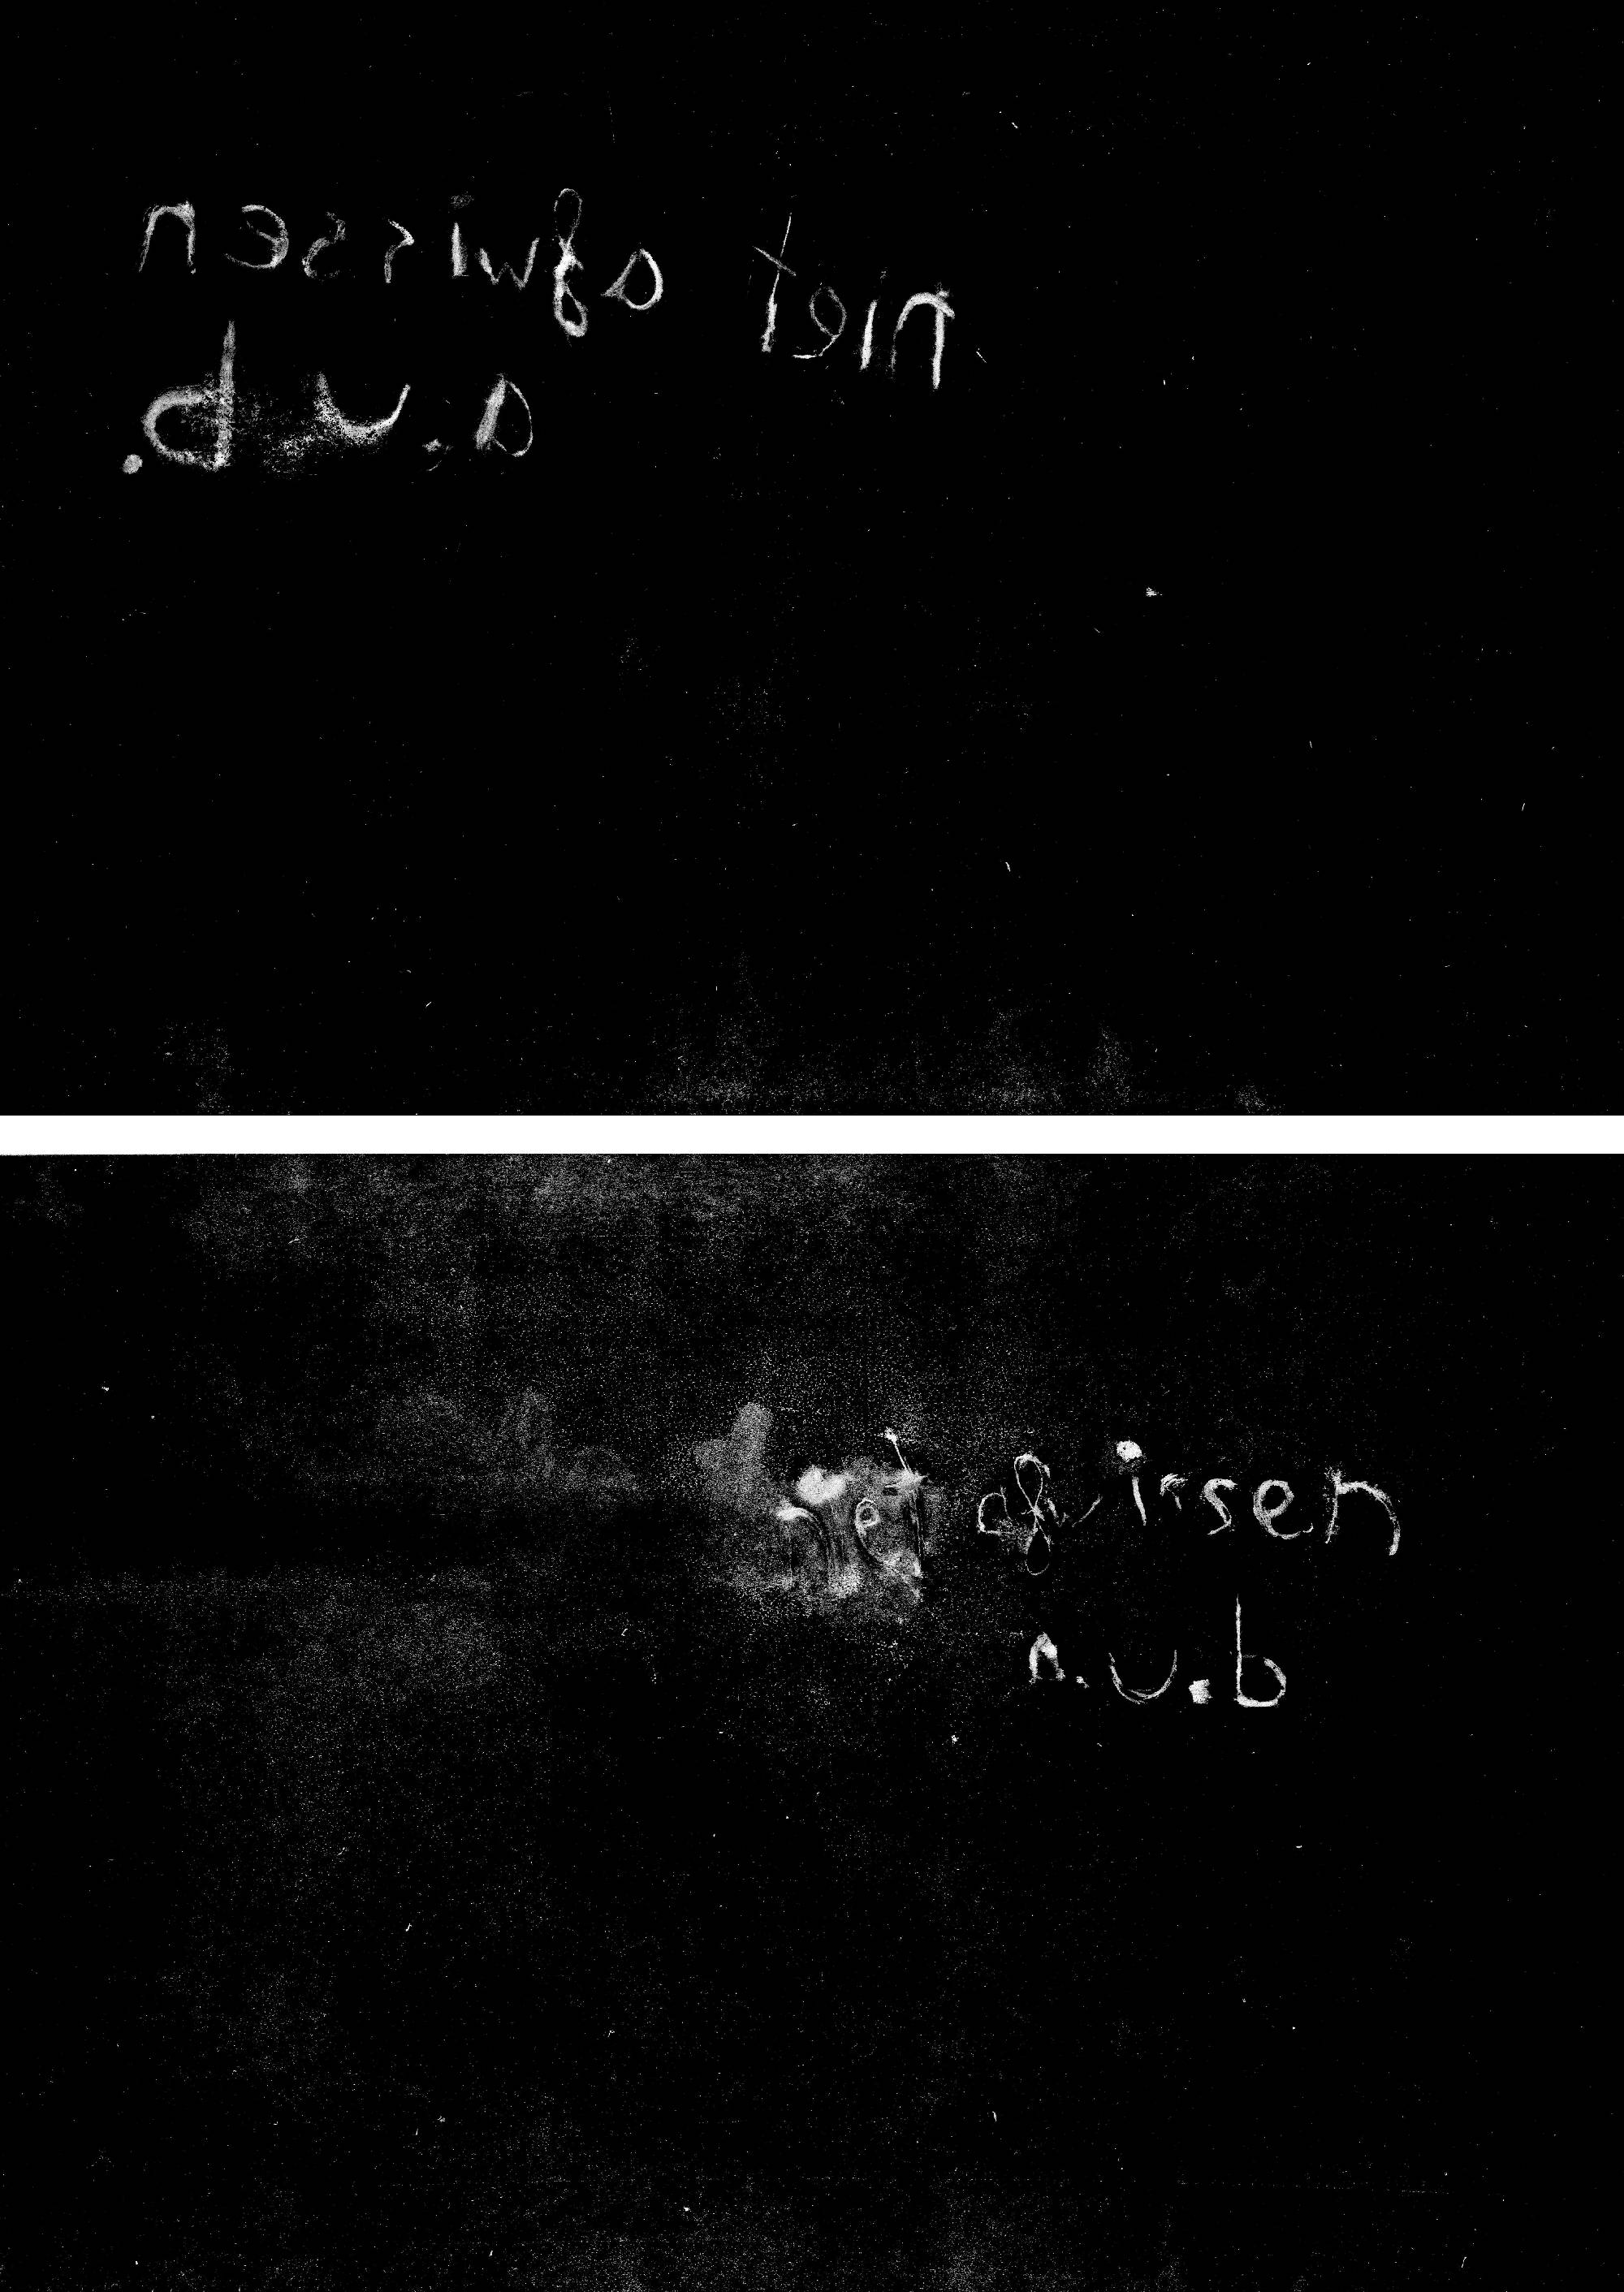 niet afwissen
a.u.b.
niet afwissen
a.u.b